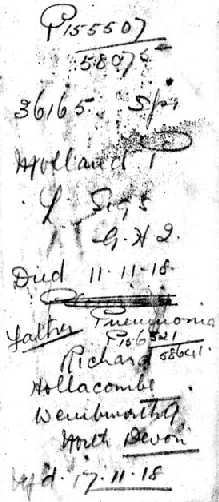 P155507
58075
36165. Spr
Holland 1
L Sigs
G.H.2.
Died 11.11.18.
Pneumonia
Father P156521
Richard 58641.
Hollacombe
Wembworthy
North Devon
17.11.18